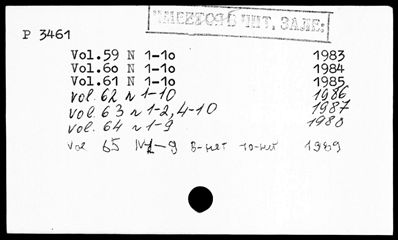 ЧИТ. ЗАЛЕ:
P 3461
Vol.59 N 1-10 1983
Vol.60 N 1-10 1984
Vol.61 N 1-10 1985
vol. 62 n 1-10 1986
vol. 63 n 1-2, 4-10 1987
vol. 64 n 1-9 1988
vol 65 N1-9 8-нет 10-нет 1989